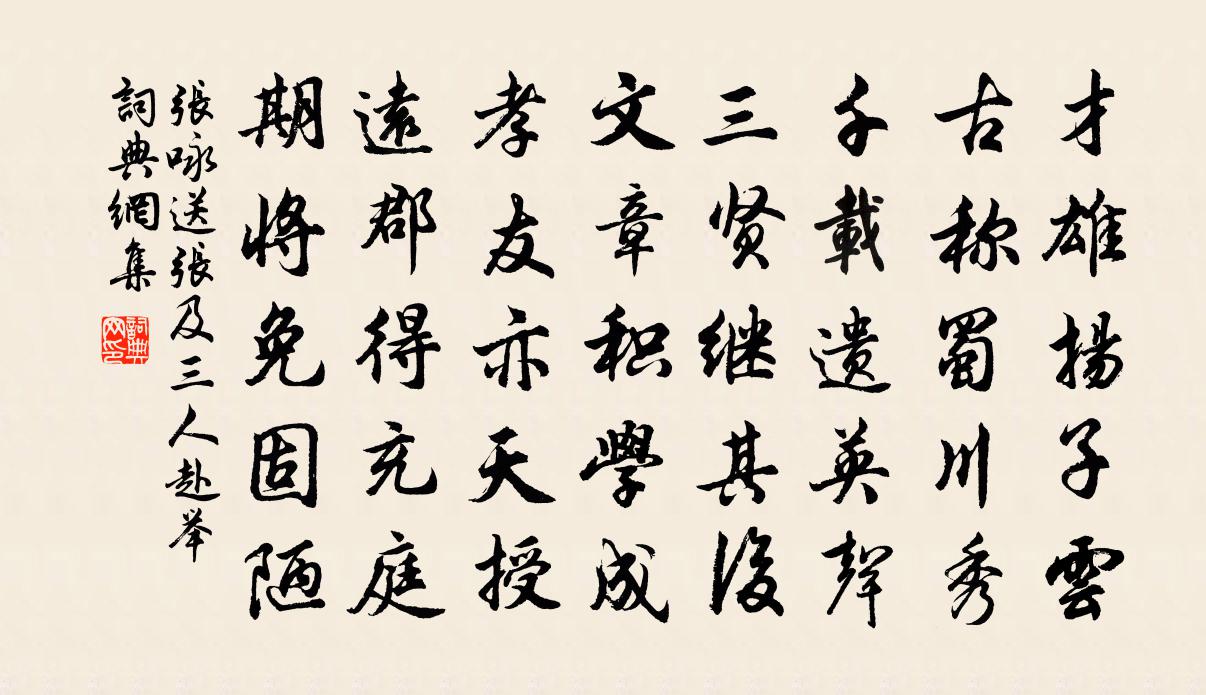 才雄揚子雲
古称蜀川秀
千載遺英聲
三贤继其後
文章积學成
孝友亦天授
遠郡得充庭
期將免固陋
張咏送張及三人赴举
詞典網集
詞典网印